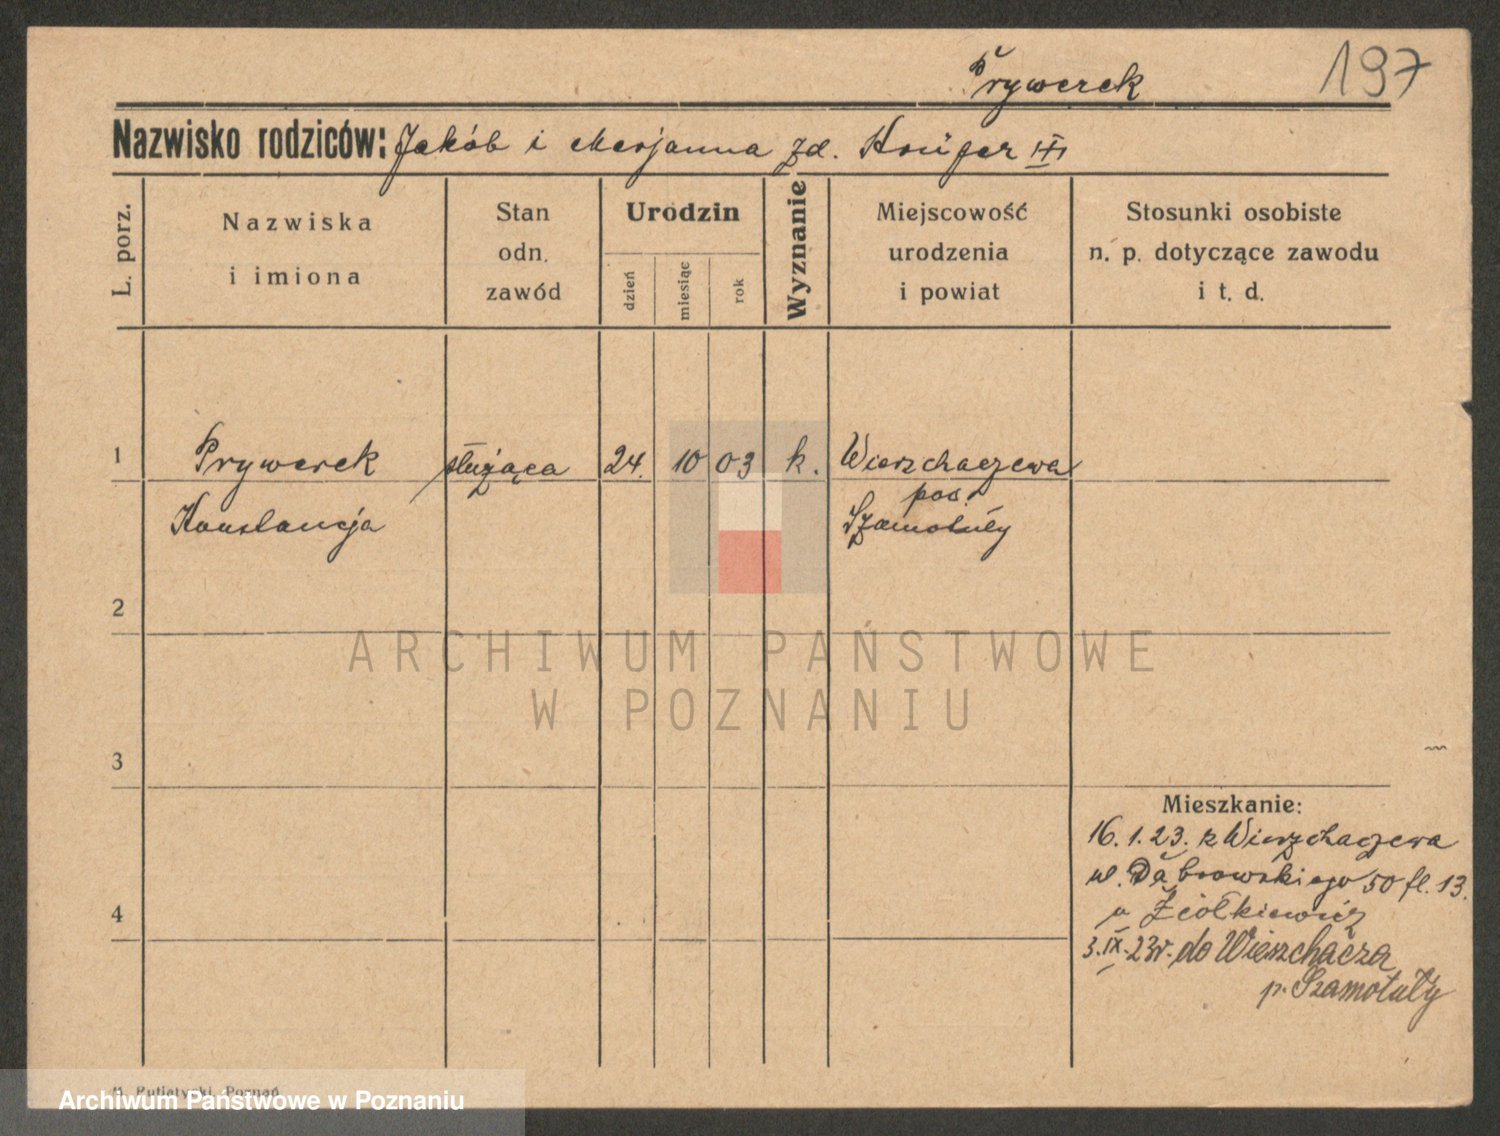 Prywerek
197
Nazwisko rodziców: Jakób i Marjanna zd. Krüger III
L. porz.
Nazwiska
i imiona
Stan
odn.
zawód
Urodzin
dzień
miesiąc
rok
Wyznanie
Miejscowość
urodzenia
i powiat
Stosunki osobiste
n. p. dotyczące zawodu
i t. d.
1 Prywerek służąca 24. 10 03 k. Wierzchaczewa
pow.
Konstancja Szamotuły
2
ARCHIWUM PAŃSTWOWE
W POZNANIU
3
Mieszkanie:
16. 1. 23. z Wierzchaczewa
ul. Dąbrowskiego 50 fl. 13.
u Ziółkiewicz
4
3.IX.23r. do Wierzchacza
p. Szamotuły
Putiatycki, Poznań
Archiwum Państwowe w Poznaniu